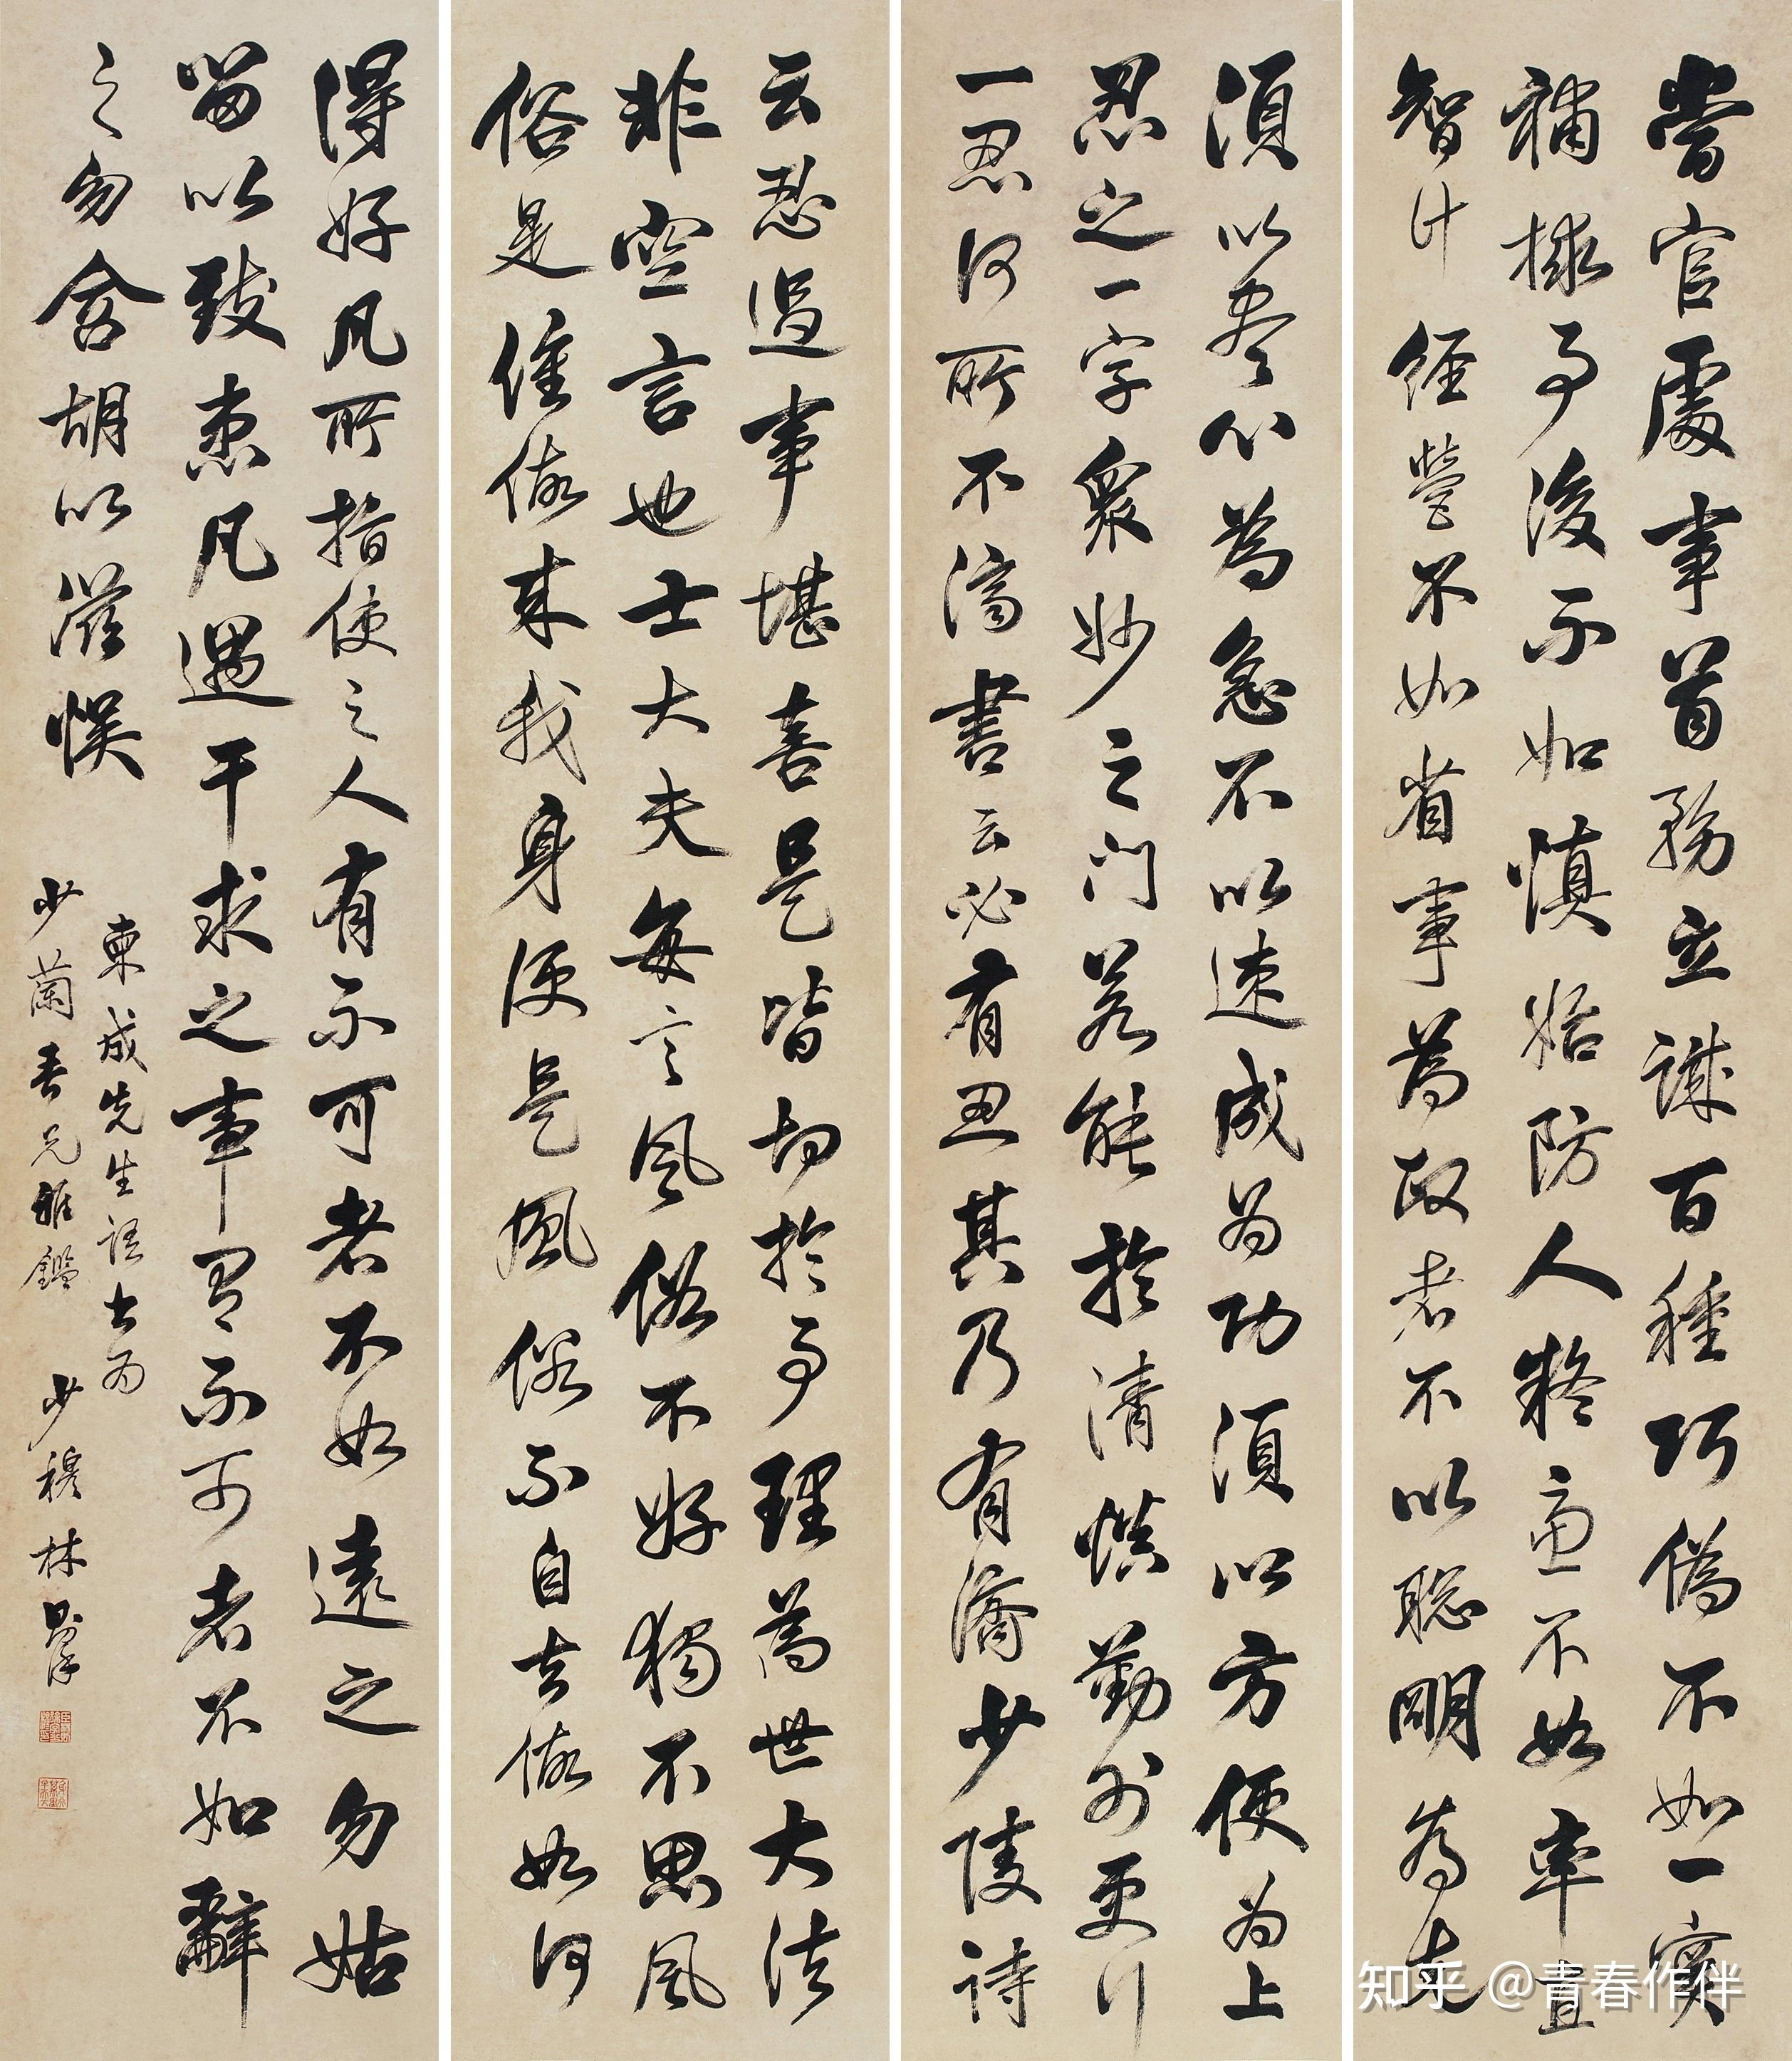 當官處事首務立誠百種巧偽不如一實
補捄事後不如慎始防人疑不如率直
智計經營不如省事為政者不以聰明為先
須以盡心為急不以速成為功須以方便為上
忍之一字眾妙之門若能於清慎勤外更行
一忍何所不濟書云必有忍其乃有濟少陵詩
云忍過事堪喜是皆切於事理為世大法
非空言也士大夫每言風俗不好獨不思風
俗是誰做來我身便是風俗不自去做如何
得好凡所指使之人有不可者不如遠之勿姑
留以致患凡遇干求之事有不可者不如辭
之勿含胡以滋悞
東成先生語書為
少蘭吾兄雅鑑 少穆林則徐
知乎 @青春作伴